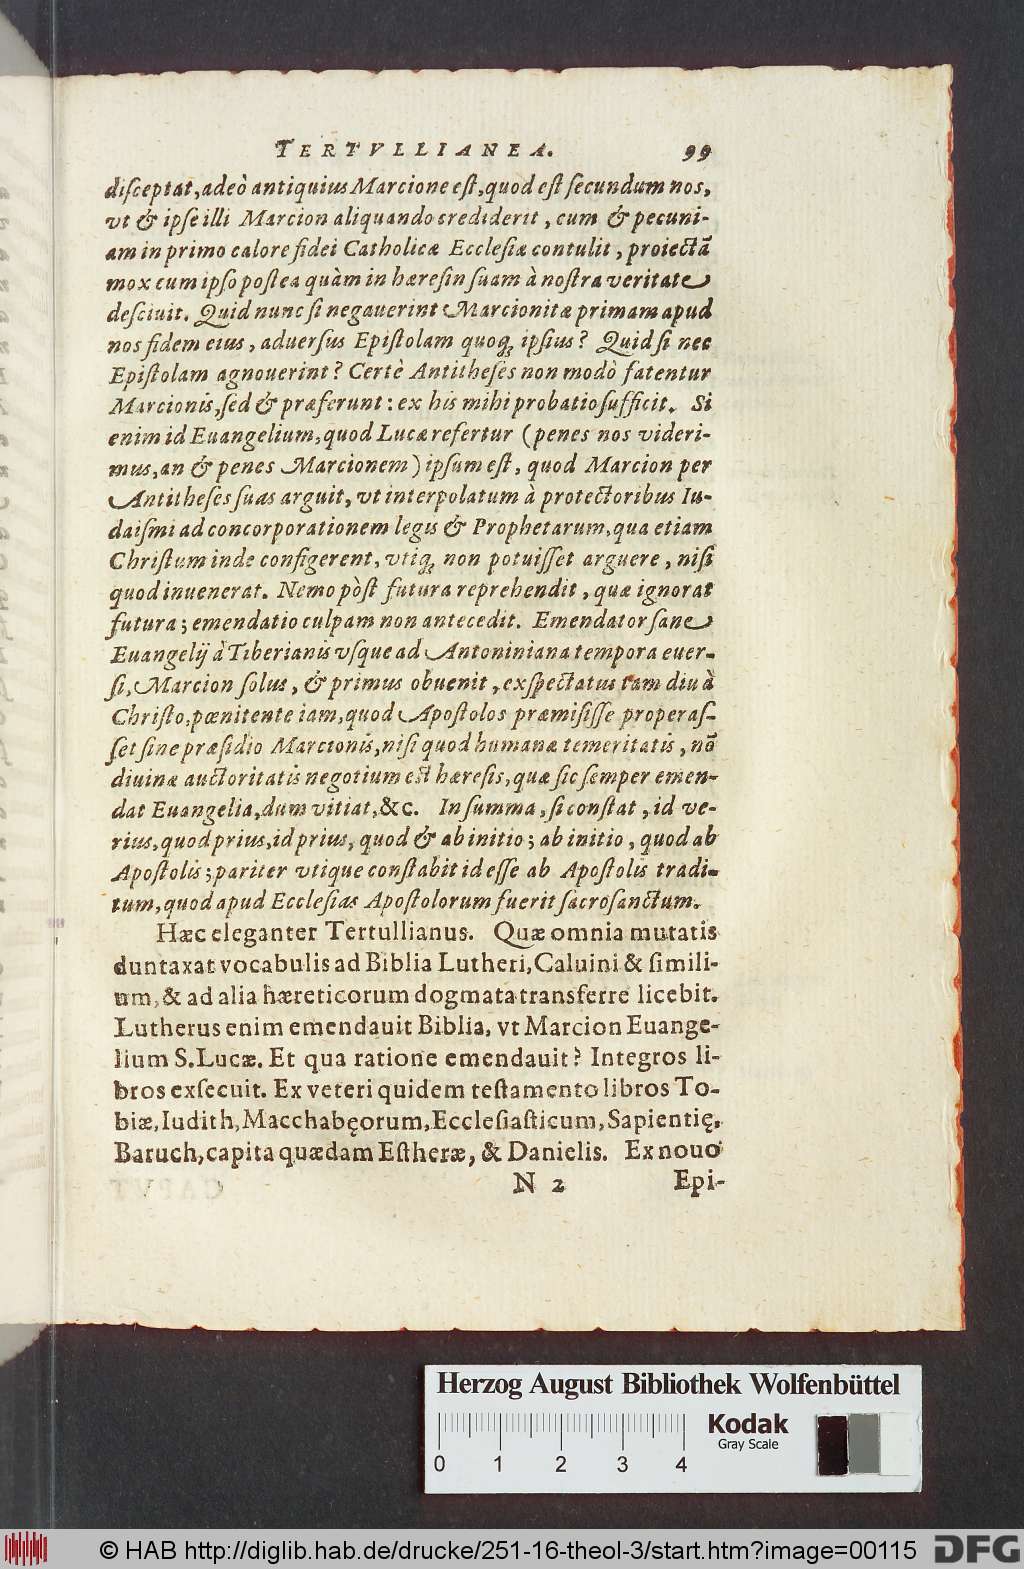 TERTVLLIANEA. 99
disceptat, adeò antiquius Marcione est, quod est secundum nos,
vt & ipse illi Marcion aliquando crediderit, cum & pecuni-
am in primo calore fidei Catholicæ Ecclesiæ contulit, proiectā
mox cum ipso postea quàm in hæresin suam à nostra veritate
desciuit. Quid nunc si negauerint Marcionitæ primam apud
nos fidem eius, aduersus Epistolam quoq; ipsius? Quid si nec
Epistolam agnouerint? Certè Antitheses non modò fatentur
Marcionis, sed & præferunt: ex his mihi probatio sufficit. Si
enim id Euangelium, quod Lucæ refertur (penes nos videri-
mus, an & penes Marcionem) ipsum est, quod Marcion per
Antitheses suas arguit, vt interpolatum à protectoribus Iu-
daismi ad concorporationem legis & Prophetarum, qua etiam
Christum inde configerent, vtiq; non potuisset arguere, nisi
quod inuenerat. Nemo pòst futura reprehendit, quæ ignorat
futura; emendatio culpam non antecedit. Emendator sane
Euangelij à Tiberianis vsque ad Antoniniana tempora euer-
si, Marcion solus, & primus obuenit, exspectatus tam diu à
Christo, pœnitente iam, quod Apostolos præmisisse properas-
set sine præsidio Marcionis, nisi quod humanæ temeritatis, nō
diuinæ auctoritatis negotium est hæresis, quæ sic semper emen-
dat Euangelia, dum vitiat, &c. In summa, si constat, id ve-
rius, quod prius, id prius, quod & ab initio; ab initio, quod ab
Apostolis; pariter vtique constabit id esse ab Apostolis tradi-
tum, quod apud Ecclesias Apostolorum fuerit sacrosanctum.
Hæc eleganter Tertullianus. Quæ omnia mutatis
duntaxat vocabulis ad Biblia Lutheri, Caluini & simili-
um, & ad alia hæreticorum dogmata transferre licebit.
Lutherus enim emendauit Biblia, vt Marcion Euange-
lium S. Lucæ. Et qua ratione emendauit? Integros li-
bros exsecuit. Ex veteri quidem testamento libros To-
biæ, Iudith, Macchabęorum, Ecclesiasticum, Sapientię,
Baruch, capita quædam Estheræ, & Danielis. Ex nouo
N 2 Epi-
Herzog August Bibliothek Wolfenbüttel
Kodak
Gray Scale
0 1 2 3 4
© HAB http://diglib.hab.de/drucke/251-16-theol-3/start.htm?image=00115
DFG